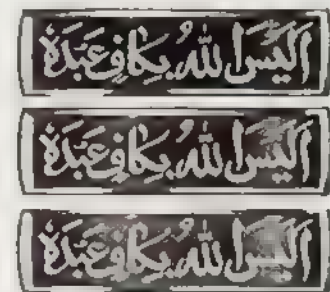 اَلَيْسَ اللهُ بِكَافٍ عَبْدَهٗ
اَلَيْسَ اللهُ بِكَافٍ عَبْدَهٗ
اَلَيْسَ اللهُ بِكَافٍ عَبْدَهٗ